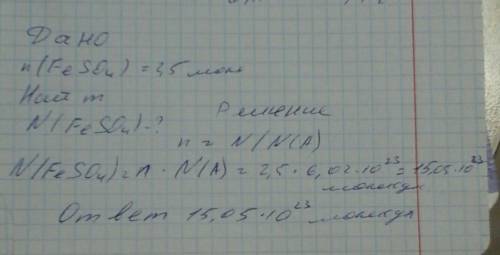 Дано
n(FeSO₄) = 2,5 моль
Найти
N(FeSO₄)-?
Решение
n = N/N(A)
N(FeSO₄) = n · N(A) = 2,5 · 6,02·10²³ = 15,05·10²³
молекул
Ответ 15,05·10²³ молекул